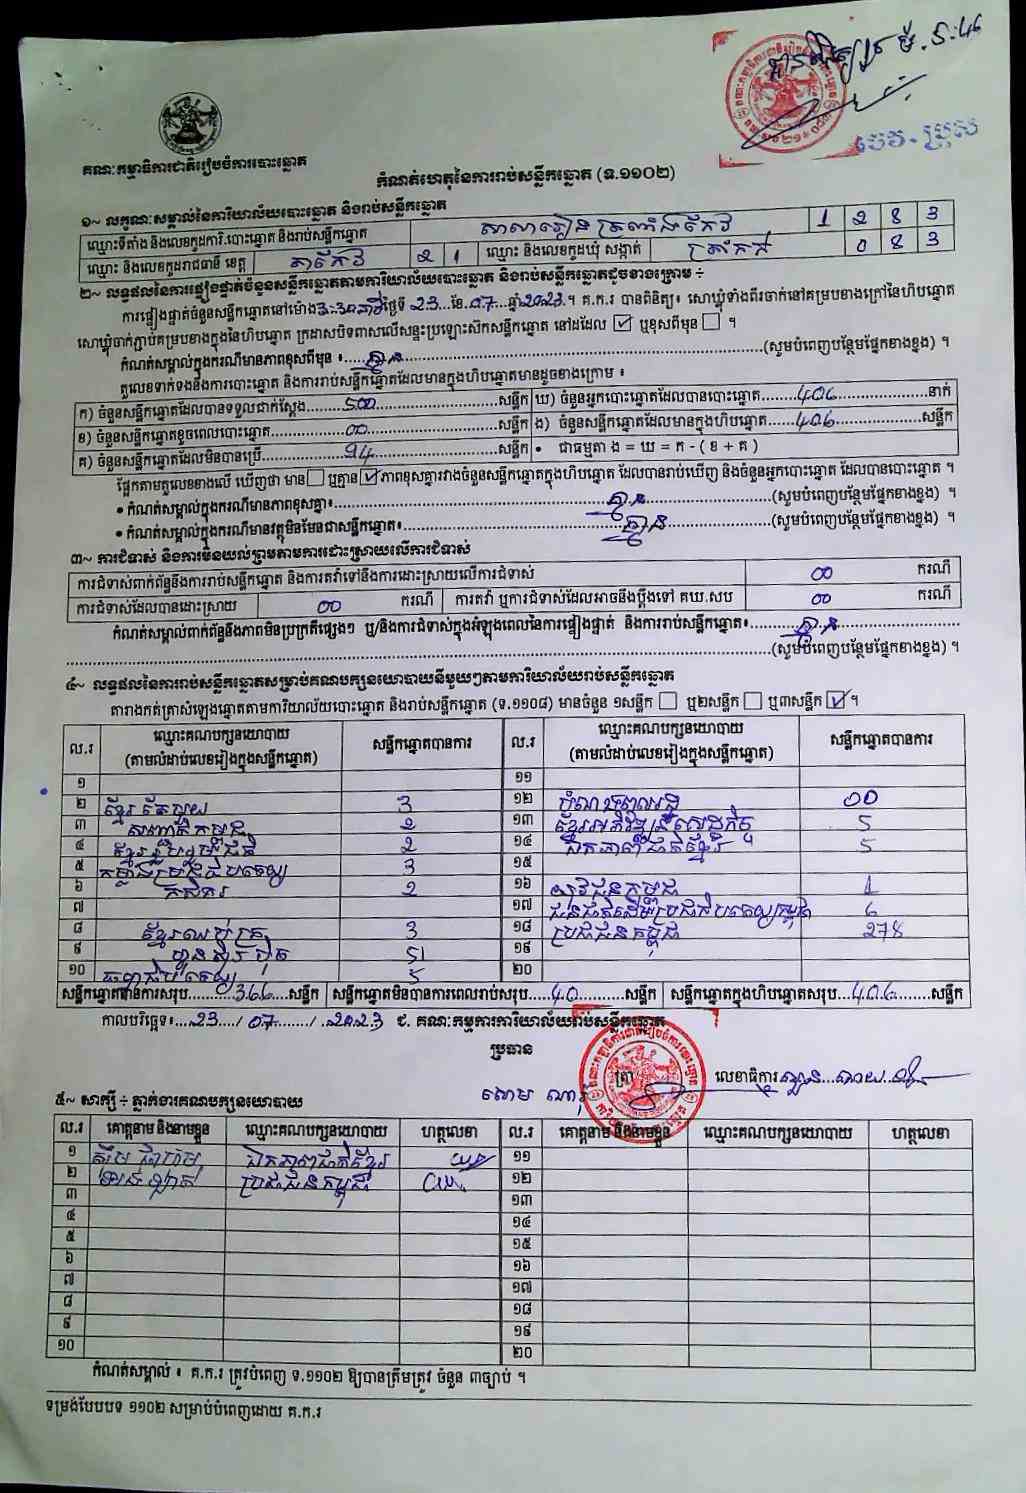 គណៈកម្មាធិការជាតិរៀបចំការបោះឆ្នោត
កំណត់ហេតុនៃការរាប់សន្លឹកឆ្នោត (ទ.១១០២)
១~ លក្ខណៈសម្គាល់នៃការិយាល័យបោះឆ្នោត និងរាប់សន្លឹកឆ្នោត
ឈ្មោះទីតាំង និងលេខកូដការិ.បោះឆ្នោត និងរាប់សន្លឹកឆ្នោត 1 2 8 3
ឈ្មោះ និងលេខកូដរាជធានី ខេត្ត តាកែវ 2 1 ឈ្មោះ និងលេខកូដឃុំ សង្កាត់ 0 8 3
២~ លទ្ធផលនៃការផ្ទៀងផ្ទាត់ចំនួនសន្លឹកឆ្នោតតាមការិយាល័យបោះឆ្នោត និងរាប់សន្លឹកឆ្នោតដូចខាងក្រោម ÷
ការផ្ទៀងផ្ទាត់ចំនួនសន្លឹកឆ្នោតនៅម៉ោង 3:30 នាទី ថ្ងៃទី 23 ខែ 07 ឆ្នាំ 2023 ។ គ.ក.រ បានពិនិត្យ៖ សោឃ្លុំទាំងពីរចាក់នៅគម្របខាងក្រៅនៃហិបឆ្នោត
សោឃ្លុំចាក់ភ្ជាប់គម្របខាងក្នុងនៃហិបឆ្នោត ក្រដាសបិទពាសលើសន្ទះប្រឡោះស៊កសន្លឹកឆ្នោត នៅដដែល ☑ ឬខុសពីមុន ☐ ។
កំណត់សម្គាល់ក្នុងករណីមានភាពខុសពីមុន ៖ គ្មាន (សូមបំពេញបន្ថែមផ្នែកខាងខ្នង) ។
តួលេខទាក់ទងនឹងការបោះឆ្នោត និងការរាប់សន្លឹកឆ្នោតដែលមានក្នុងហិបឆ្នោតមានដូចខាងក្រោម ៖
ក) ចំនួនសន្លឹកឆ្នោតដែលបានទទួលជាក់ស្តែង 500 សន្លឹក ឃ) ចំនួនអ្នកបោះឆ្នោតដែលបានបោះឆ្នោត 406 នាក់
ខ) ចំនួនសន្លឹកឆ្នោតខូចពេលបោះឆ្នោត 00 សន្លឹក ង) ចំនួនសន្លឹកឆ្នោតដែលមានក្នុងហិបឆ្នោត 406 សន្លឹក
គ) ចំនួនសន្លឹកឆ្នោតដែលមិនបានប្រើ 94 សន្លឹក • ជាធម្មតា ង = ឃ = ក - ( ខ + គ )
ផ្អែកតាមតួលេខខាងលើ ឃើញថា មាន ☐ ឬគ្មាន ☑ ភាពខុសគ្នារវាងចំនួនសន្លឹកឆ្នោតក្នុងហិបឆ្នោត ដែលបានរាប់ឃើញ និងចំនួនអ្នកបោះឆ្នោត ដែលបានបោះឆ្នោត ។
• កំណត់សម្គាល់ក្នុងករណីមានភាពខុសគ្នា៖ គ្មាន (សូមបំពេញបន្ថែមផ្នែកខាងខ្នង) ។
• កំណត់សម្គាល់ក្នុងករណីមានវត្ថុមិនមែនជាសន្លឹកឆ្នោត៖ គ្មាន (សូមបំពេញបន្ថែមផ្នែកខាងខ្នង) ។
៣~ ការជំទាស់ និងការមិនយល់ព្រមតាមការដោះស្រាយលើការជំទាស់
ការជំទាស់ពាក់ព័ន្ធនឹងការរាប់សន្លឹកឆ្នោត និងការតវ៉ាទៅនឹងការដោះស្រាយលើការជំទាស់ 00 ករណី
ការជំទាស់ដែលបានដោះស្រាយ 00 ករណី ការតវ៉ា ឬការជំទាស់ដែលអាចនឹងប្តឹងទៅ គឃ.សប 00 ករណី
កំណត់សម្គាល់ពាក់ព័ន្ធនឹងភាពមិនប្រក្រតីផ្សេងៗ ឬ/និងការជំទាស់ក្នុងអំឡុងពេលនៃការផ្ទៀងផ្ទាត់ និងការរាប់សន្លឹកឆ្នោត៖ គ្មាន
(សូមបំពេញបន្ថែមផ្នែកខាងខ្នង) ។
៤~ លទ្ធផលនៃការរាប់សន្លឹកឆ្នោតសម្រាប់គណបក្សនយោបាយនីមួយៗតាមការិយាល័យរាប់សន្លឹកឆ្នោត
តារាងកត់ត្រាសំឡេងឆ្នោតតាមការិយាល័យបោះឆ្នោត និងរាប់សន្លឹកឆ្នោត (ទ.១១០៨) មានចំនួន ១សន្លឹក ☐ ឬ២សន្លឹក ☐ ឬ៣សន្លឹក ☑ ។
ល.រ ឈ្មោះគណបក្សនយោបាយ (តាមលំដាប់លេខរៀងក្នុងសន្លឹកឆ្នោត) សន្លឹកឆ្នោតបានការ ល.រ ឈ្មោះគណបក្សនយោបាយ (តាមលំដាប់លេខរៀងក្នុងសន្លឹកឆ្នោត) សន្លឹកឆ្នោតបានការ
១ ១១
២ ខ្មែរតែមួយ 3 ១២ 00
៣ សញ្ជាតិកម្ពុជា 2 ១៣ ខ្មែរអភិវឌ្ឍន៍សេដ្ឋកិច្ច 5
៤ ខ្មែររួបរួមជាតិ 2 ១៤ ឯកភាពជាតិខ្មែរ 5
៥ 3 ១៥
៦ កសិករ 2 ១៦ យុវជនកម្ពុជា 1
៧ ១៧ ជនជាតិដើមប្រជាធិបតេយ្យកម្ពុជា 6
៨ ខ្មែរឈប់ក្រ 3 ១៨ ប្រជាជនកម្ពុជា 274
៩ ហ៊្វុនស៊ិនប៉ិច 51 ១៩
១០ 5 ២០
សន្លឹកឆ្នោតបានការសរុប 366 សន្លឹក សន្លឹកឆ្នោតមិនបានការពេលរាប់សរុប 40 សន្លឹក សន្លឹកឆ្នោតក្នុងហិបឆ្នោតសរុប 406 សន្លឹក
កាលបរិច្ឆេទ៖ 23 / 07 / 2023 ជ. គណៈកម្មការការិយាល័យរាប់សន្លឹកឆ្នោត
ប្រធាន
ត្រា លេខាធិការ
៥~ សាក្សី ÷ ភ្នាក់ងារគណបក្សនយោបាយ
ល.រ គោត្តនាម និងនាមខ្លួន ឈ្មោះគណបក្សនយោបាយ ហត្ថលេខា ល.រ គោត្តនាម និងនាមខ្លួន ឈ្មោះគណបក្សនយោបាយ ហត្ថលេខា
១ ឯកភាពជាតិខ្មែរ ១១
២ ប្រជាជនកម្ពុជា ១២
៣ ១៣
៤ ១៤
៥ ១៥
៦ ១៦
៧ ១៧
៨ ១៨
៩ ១៩
១០ ២០
កំណត់សម្គាល់ ៖ គ.ក.រ ត្រូវបំពេញ ទ.១១០២ ឱ្យបានត្រឹមត្រូវ ចំនួន ៣ច្បាប់ ។
ទម្រង់បែបបទ ១១០២ សម្រាប់បំពេញដោយ គ.ក.រ